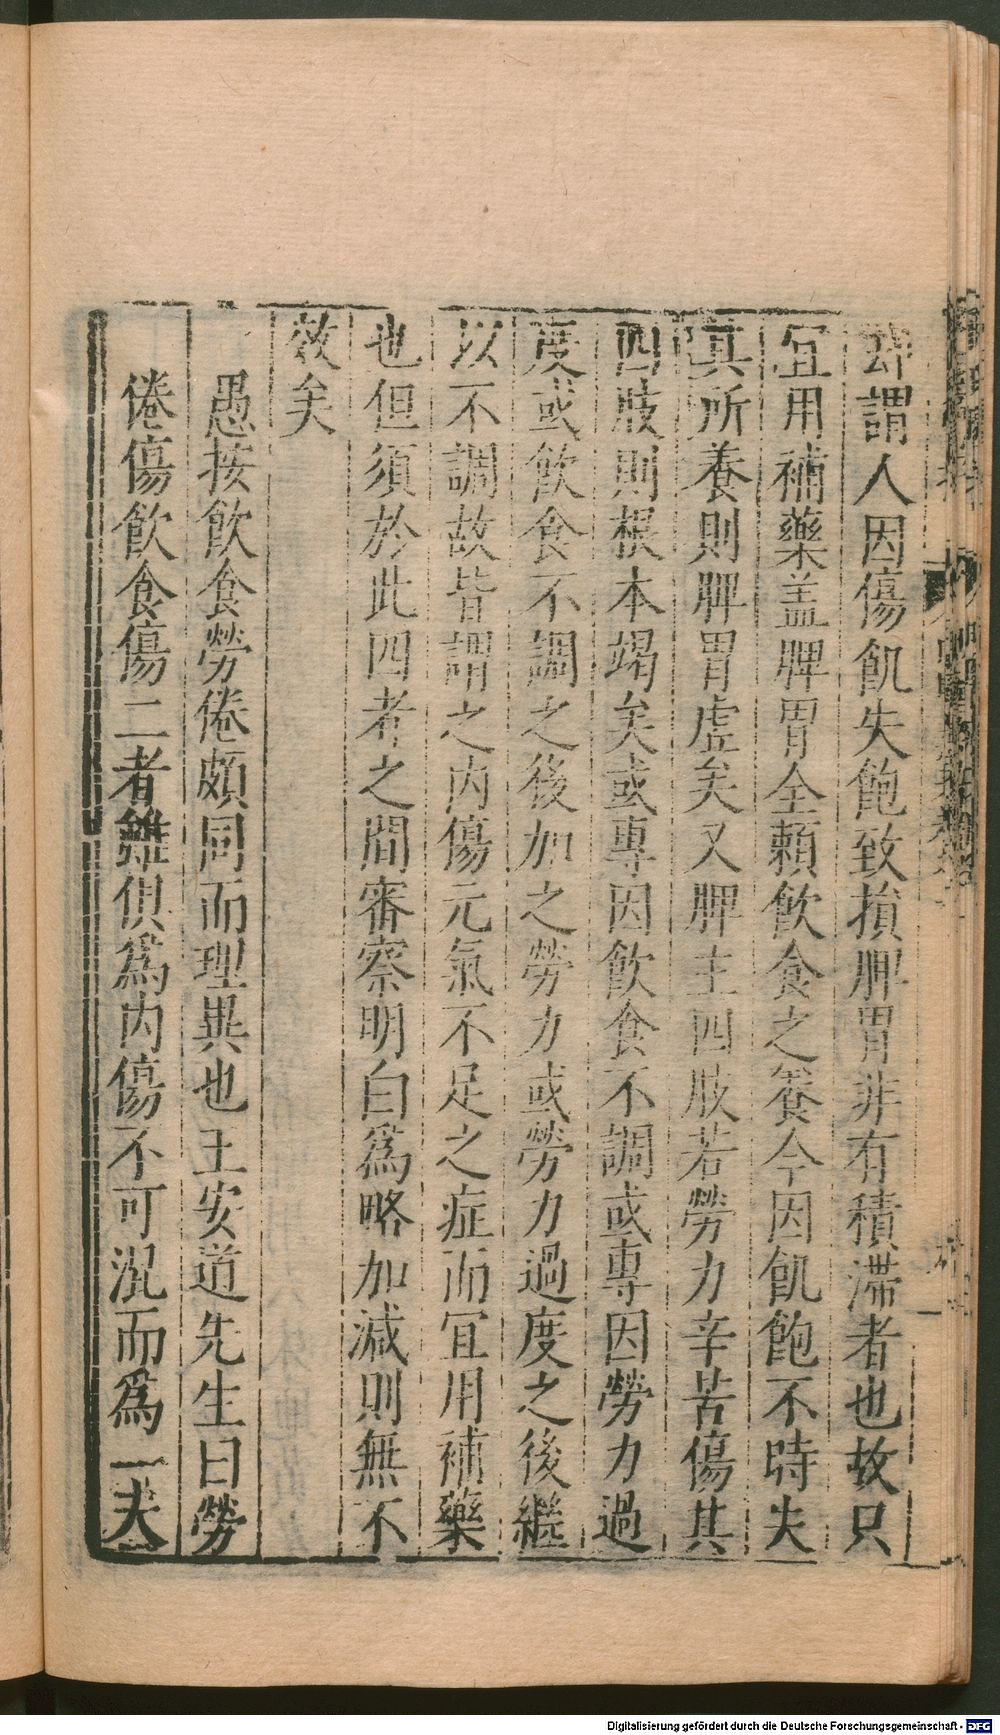 即謂人因傷飢失飽致損脾胃非有積滯者也故只
宜用補藥盖脾胃全賴飲食之養今因飢飽不時失
其所養則脾胃虛矣又脾主四肢若勞力辛苦傷其
四肢則根本竭矣或專因飲食不調或專因勞力過
度或飲食不調之後加之勞力或勞力過度之後繼
以不調故皆謂之内傷元氣不足之症而宜用補藥
也但須於此四者之間審察明白爲略加減則無不
效矣
愚按飲食勞倦頗同而理異也王安道先生曰勞
倦傷飲食傷二者雖俱爲内傷不可混而爲一夫
Digitalisierung gefördert durch die Deutsche Forschungsgemeinschaft - DFG